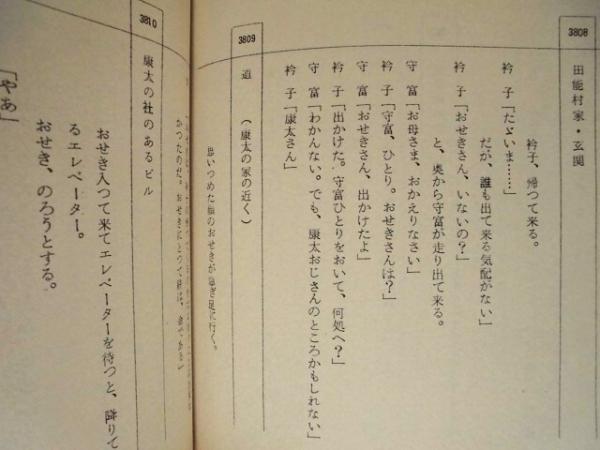 3808
田能村家・玄関
衿子、帰つて来る。
衿子「たゞいま……」
だが、誰も出て来る気配がない」
衿子「おせきさん、いないの？」
と、奥から守富が走り出て来る。
守富「お母さま、おかえりなさい」
衿子「守富、ひとり。おせきさんは？」
守富「おせきさん、出かけたよ」
衿子「出かけた。守富ひとりをおいて、何処へ？」
守富「わかんない。でも、康太おじさんのところかもしれない」
衿子「康太さん」
3809
道　（康太の家の近く）
思いつめた顔のおせきが急ぎ足に行く。
かつたのだ。おせきにとつて
3810
康太の社のあるビル
おせき入つて来てエレベーターを待つと、降りて
るエレベーター。
おせき、のろうとする。
「やあ」